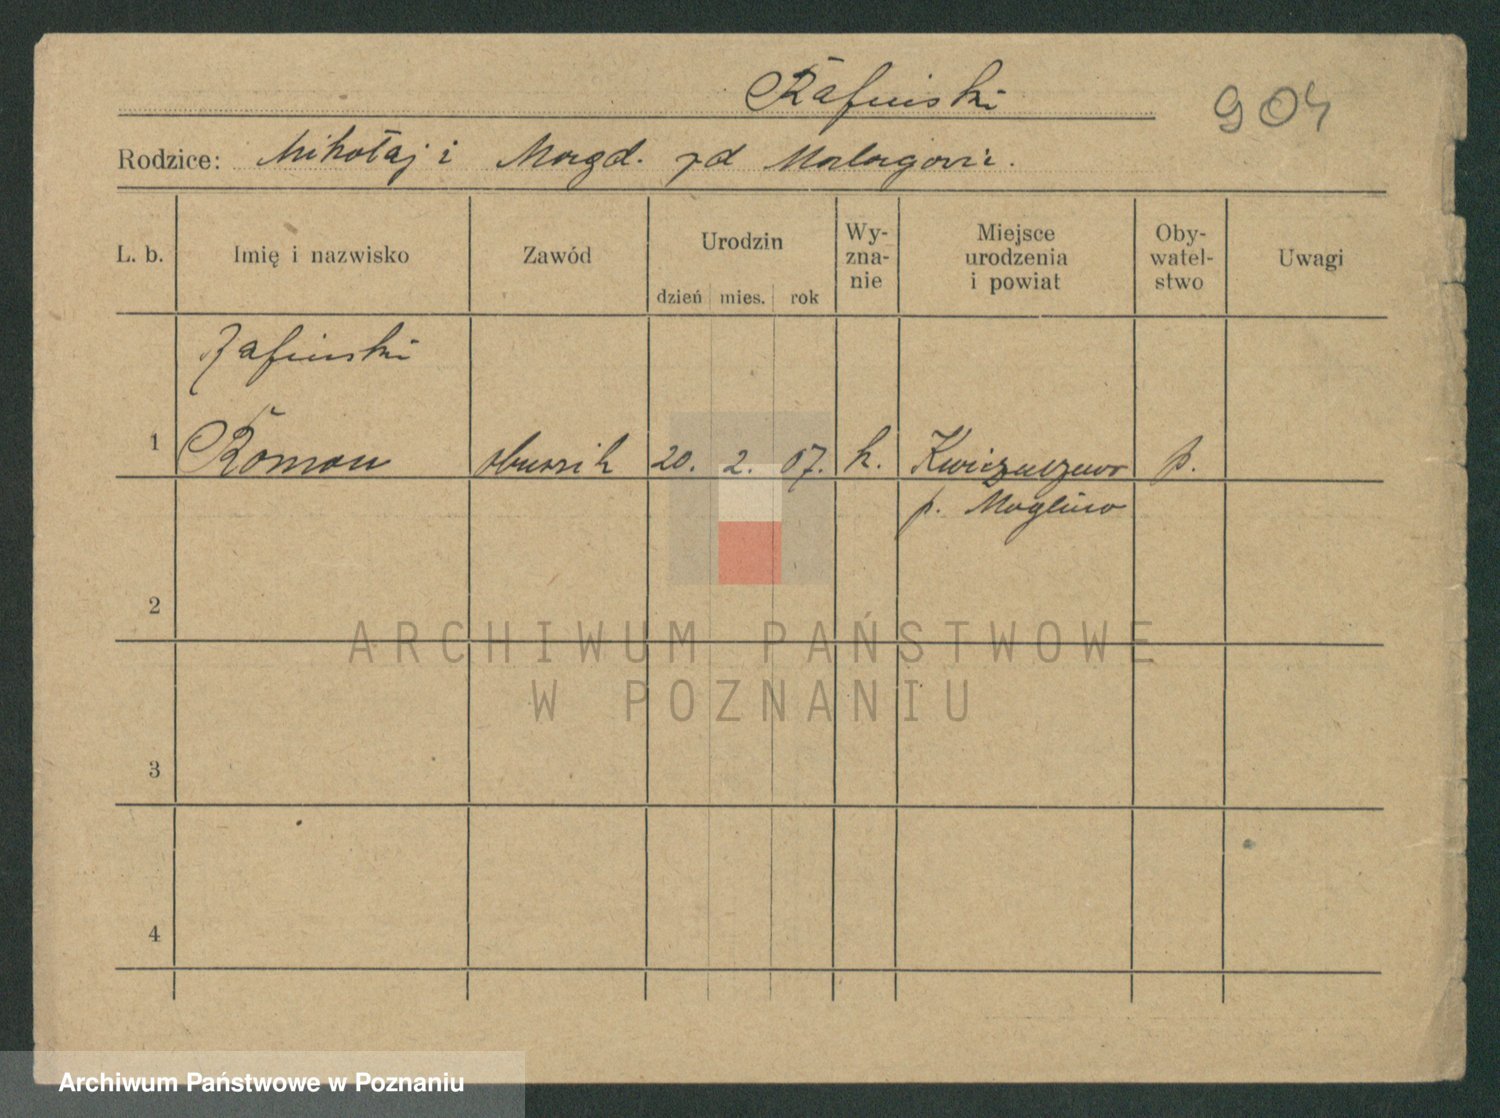 Rafiński
904
Rodzice: Mikołaj i Magd. zd Malagovic.
L. b.
Imię i nazwisko
Zawód
Urodzin
dzień mies. rok
Wy-
zna-
nie
Miejsce
urodzenia
i powiat
Oby-
watel-
stwo
Uwagi
Rafiński
1 Roman 20. 2. 07. k. p.
p. Mogilno
2
ARCHIWUM PAŃSTWOWE
W POZNANIU
3
4
Archiwum Państwowe w Poznaniu